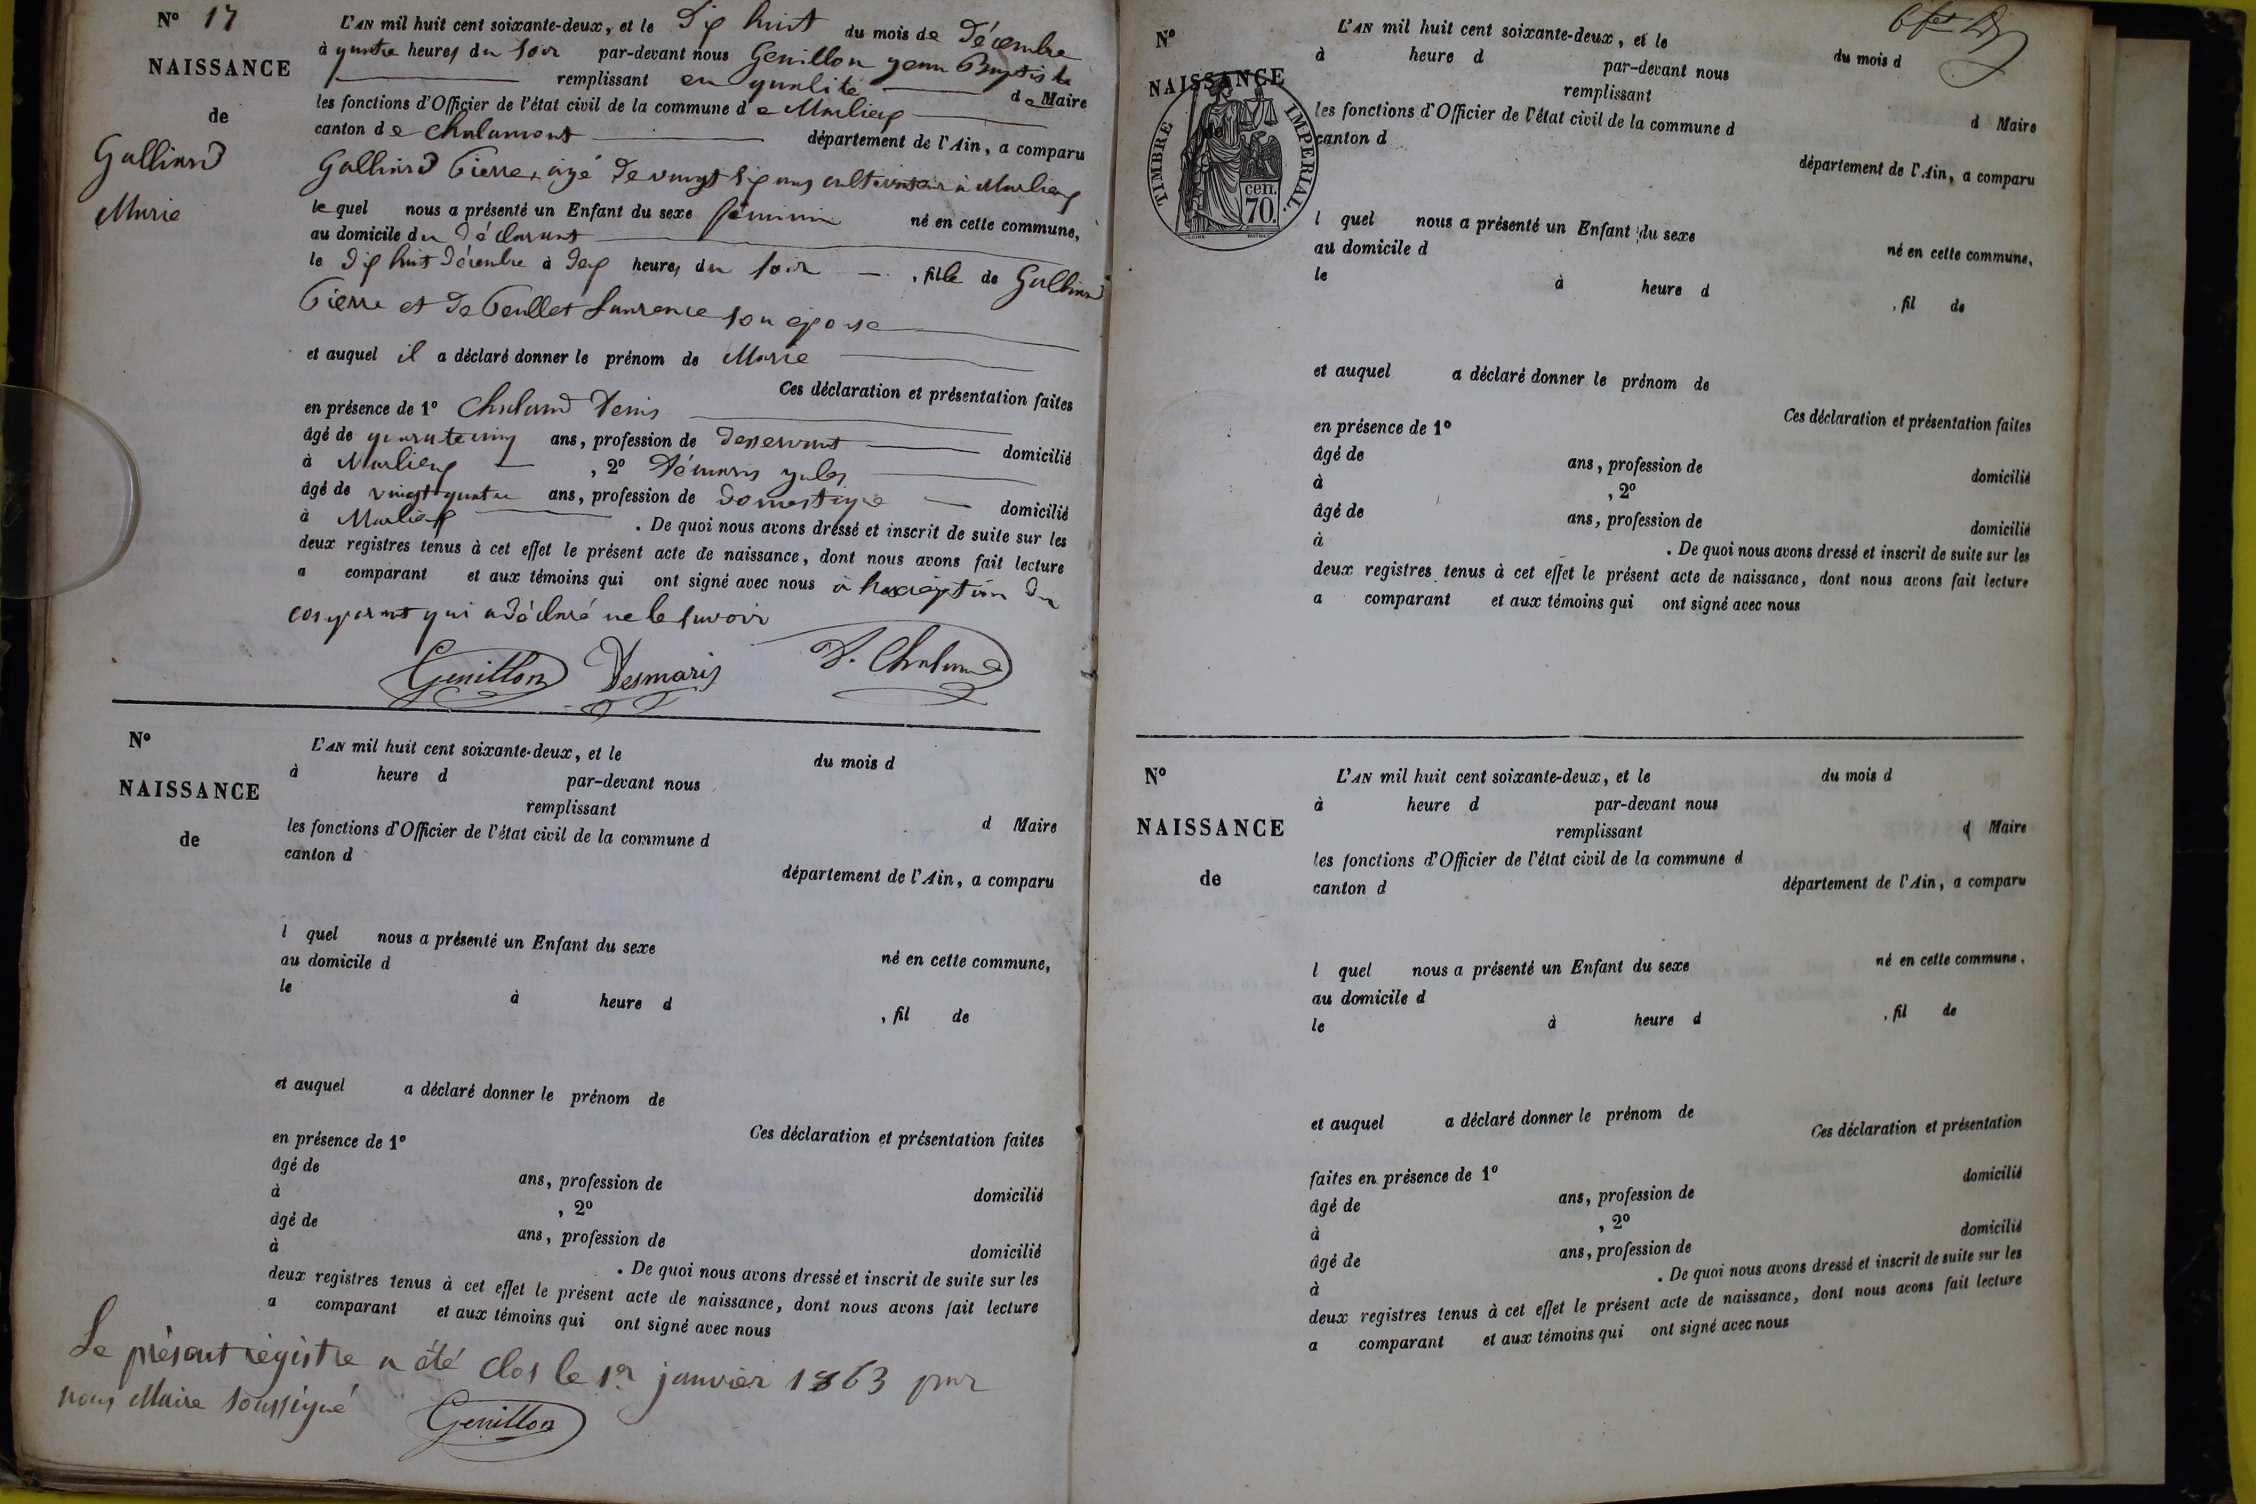 Nº 17
NAISSANCE
de
Galliard
Marie
L'AN mil huit cent soixante-deux, et le Dix huit du mois de Décembre
à quatre heures du soir par-devant nous Genillon Jean Baptiste
remplissant en qualité de Maire
les fonctions d'Officier de l'état civil de la commune de Marlieux
canton de Chalamont département de l'Ain, a comparu
Galliard Pierre, âgé de vingt six ans cultivateur à Marlieux
lequel nous a présenté un Enfant du sexe féminin né en cette commune,
au domicile du déclarant
le dix huit Décembre à deux heures du soir , fille de Galliard
Pierre et de Laurence son épouse
et auquel il a déclaré donner le prénom de Marie
Ces déclaration et présentation faites
en présence de 1º Chaland Denis
âgé de ans, profession de desservant domicilié
à Marlieux , 2º Démaris Jules
âgé de vingt quatre ans, profession de domestique domicilié
à Marlieux . De quoi nous avons dressé et inscrit de suite sur les
deux registres tenus à cet effet le présent acte de naissance, dont nous avons fait lecture
a comparant et aux témoins qui ont signé avec nous à du
comparant qui a déclaré ne le savoir
Genillon Desmaris D. Chaland
Nº
NAISSANCE
de
L'AN mil huit cent soixante-deux, et le du mois d
à heure d par-devant nous
remplissant
d Maire
les fonctions d'Officier de l'état civil de la commune d
canton d
département de l'Ain, a comparu
l quel nous a présenté un Enfant du sexe
né en cette commune,
au domicile d
le à heure d
, fil de
et auquel a déclaré donner le prénom de
Ces déclaration et présentation faites
en présence de 1º
âgé de ans, profession de domicilié
à , 2º
âgé de ans, profession de domicilié
à . De quoi nous avons dressé et inscrit de suite sur les
deux registres tenus à cet effet le présent acte de naissance, dont nous avons fait lecture
a comparant et aux témoins qui ont signé avec nous
Le présent régistre a été clos le 1er janvier 1863 par
nous Maire soussigné Genillon
Nº
NAISSANCE
de
TIMBRE IMPERIAL.
70. cen.
L'AN mil huit cent soixante-deux, et le du mois d
à heure d par-devant nous
remplissant
d Maire
les fonctions d'Officier de l'état civil de la commune d
canton d
département de l'Ain, a comparu
l quel nous a présenté un Enfant du sexe
né en cette commune,
au domicile d
le à heure d
, fil de
et auquel a déclaré donner le prénom de
Ces déclaration et présentation faites
en présence de 1º
âgé de ans, profession de domicilié
à , 2º
âgé de ans, profession de domicilié
à . De quoi nous avons dressé et inscrit de suite sur les
deux registres tenus à cet effet le présent acte de naissance, dont nous avons fait lecture
a comparant et aux témoins qui ont signé avec nous
Nº
NAISSANCE
de
L'AN mil huit cent soixante-deux, et le du mois d
à heure d par-devant nous
remplissant d Maire
les fonctions d'Officier de l'état civil de la commune d
canton d département de l'Ain, a comparu
l quel nous a présenté un Enfant du sexe né en cette commune,
au domicile d
le à heure d , fil de
et auquel a déclaré donner le prénom de
Ces déclaration et présentation
faites en présence de 1º domicilié
âgé de ans, profession de
à , 2º domicilié
âgé de ans, profession de
à . De quoi nous avons dressé et inscrit de suite sur les
deux registres tenus à cet effet le présent acte de naissance, dont nous avons fait lecture
a comparant et aux témoins qui ont signé avec nous